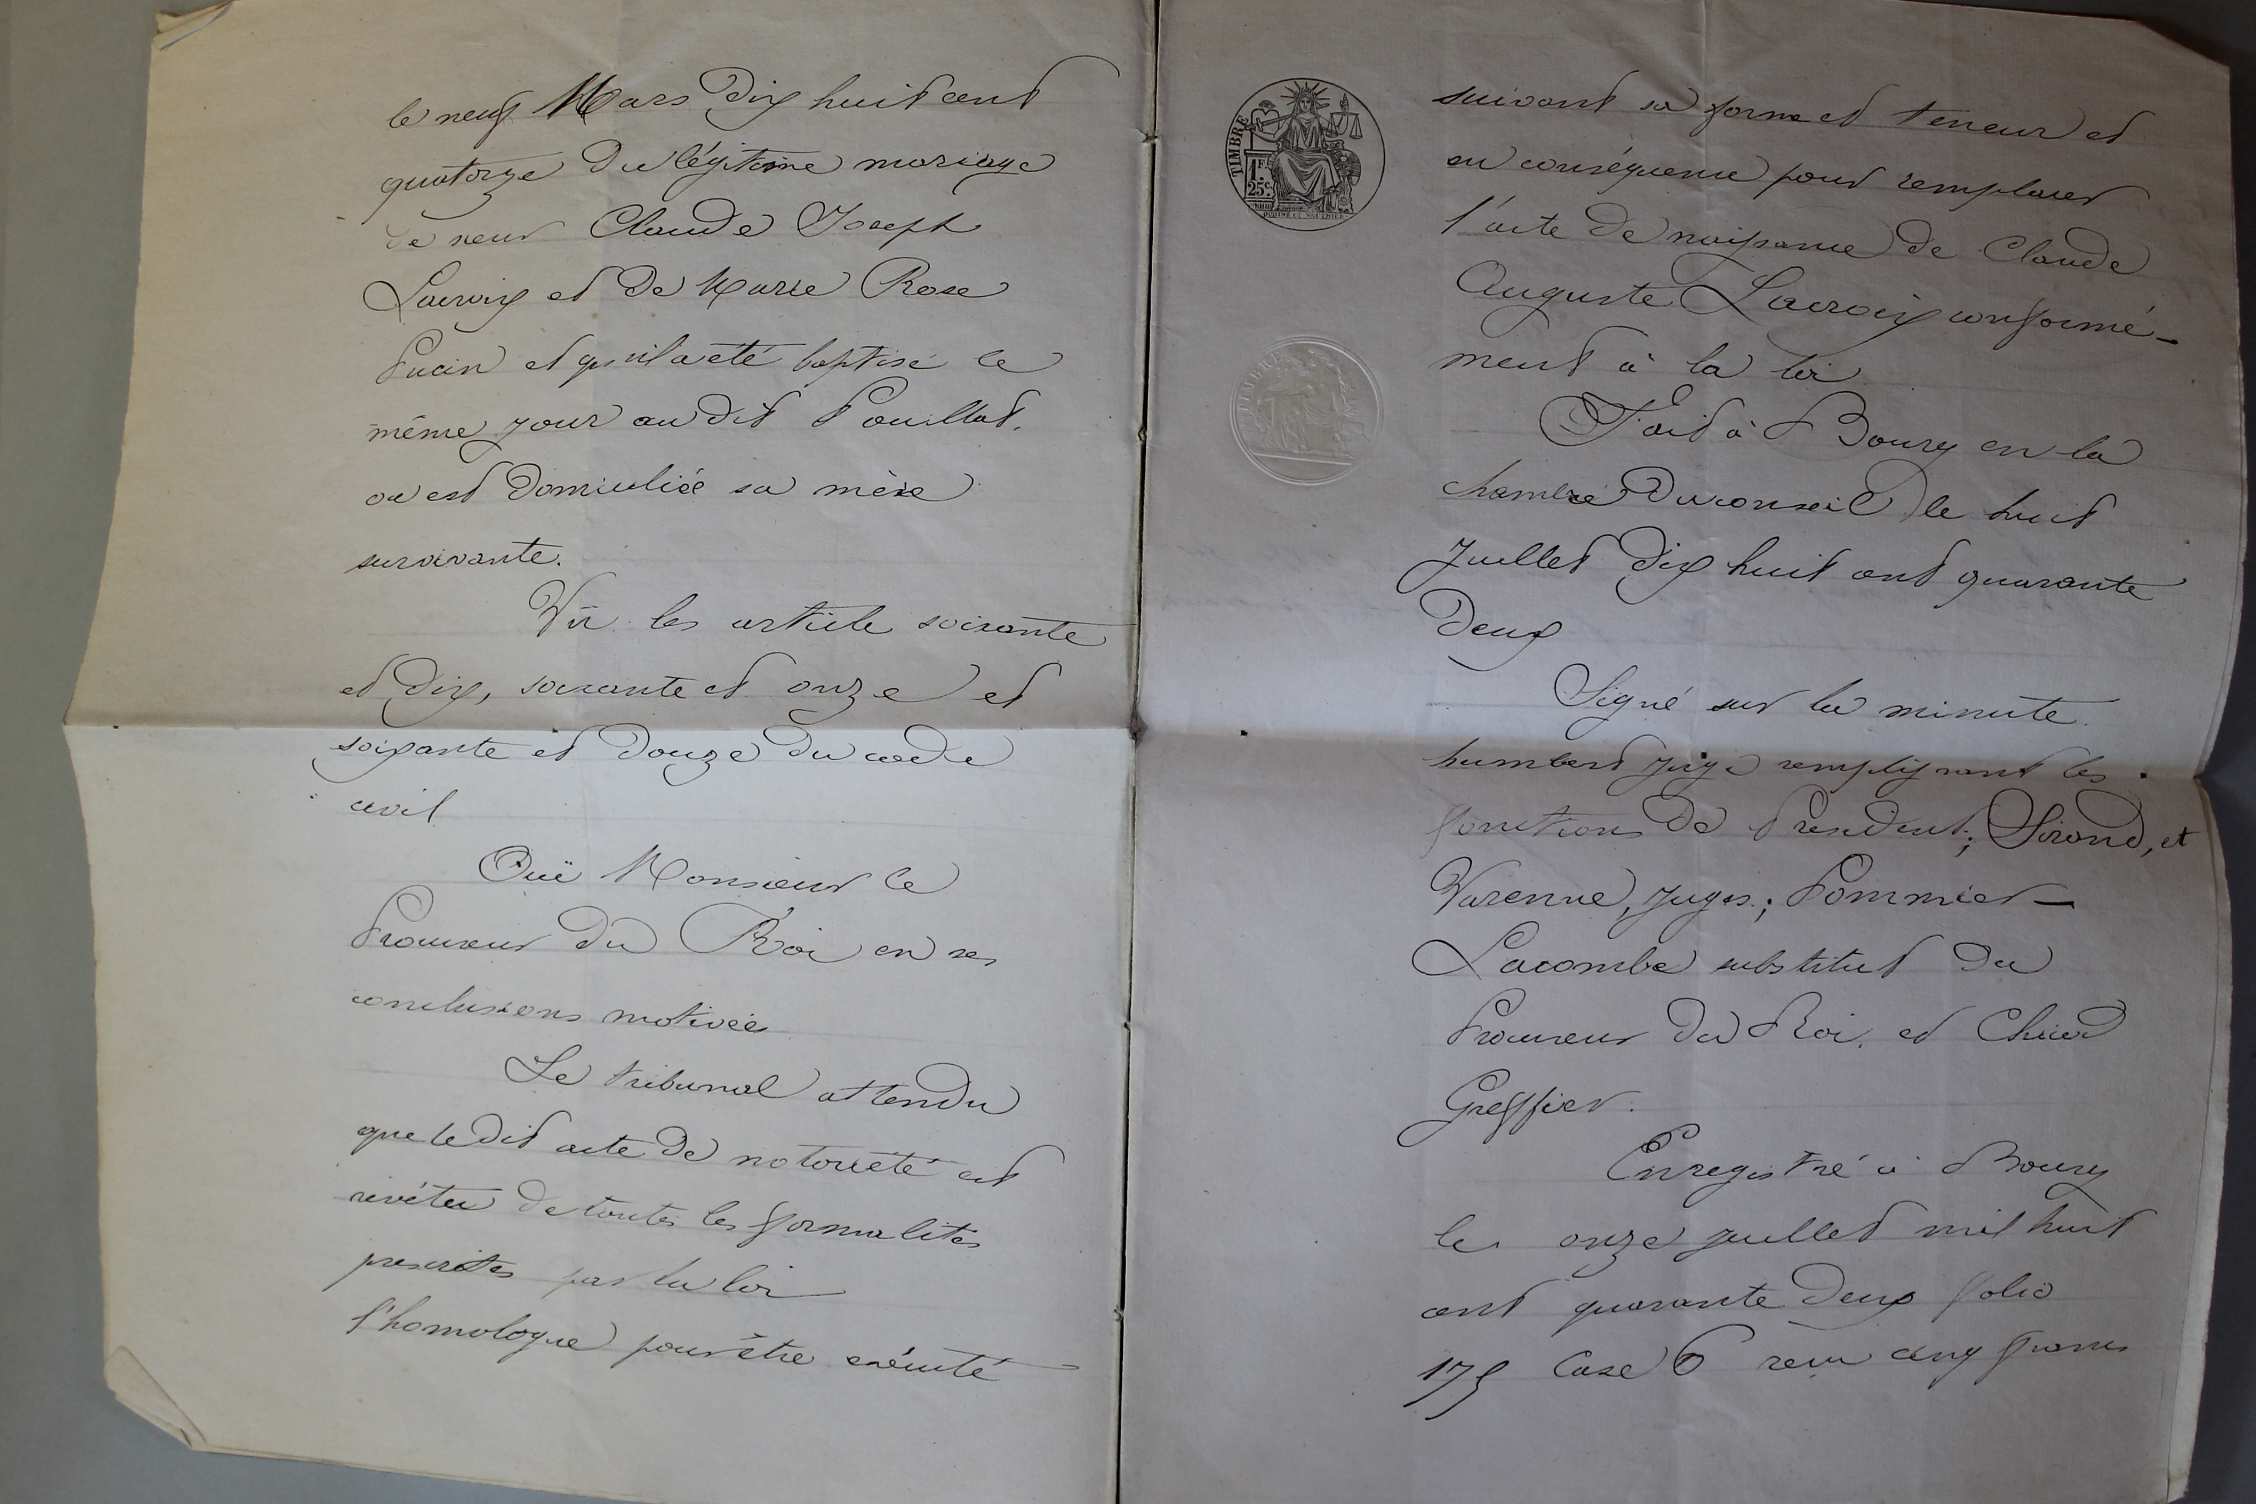 le neuf Mars dix huit cent
quatorze du légitime mariage
de sieur Claude Joseph
Lacroix et de Marie Rose
Pucin et qu'il a été baptisé le
même jour au dit Pouillat,
ou est domiciliée sa mère
survivante.
Vu les article soixante
et dix, soixante et onze et
soixante et douze du code
civil
Ouï Monsieur le
Procureur du Roi en ses
conclusions motivées
Le tribunal attendu
que le dit acte de notoriété est
revêtu de toutes les formalités
prescrites par la loi
l'homologue pour être exécuté
TIMBRE
1F.
25c.
suivant sa forme et teneur et
en conséquence pour remplacer
l'acte de naissance de Claude
Auguste Lacroix conformé-
ment à la loi
Fait à Bourg en la
chambre du conseil le huit
Juillet dix huit cent quarante
deux
Signé sur la minute
humbert juge remplissant les
fonctions de Président; Sirand, et
Varenne, Juges; Pommier-
Lacombe substitut du
Procureur du Roi, et
Greffier.
Enregistré à Bourg
le onze juillet mil huit
cent quarante deux folio
175 Case 6 reçu cinq francs